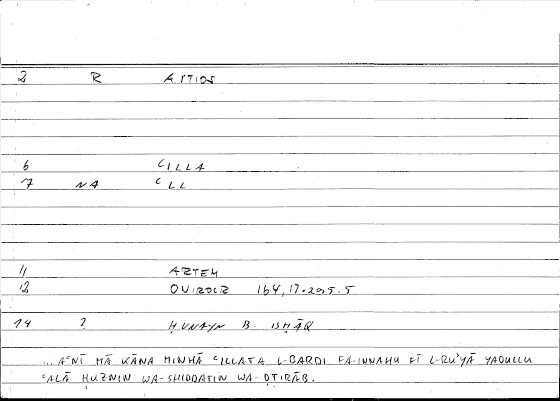 2 R AITIOS
6 ʿILLA
7 NA ʿLL
11 ARTEM
12 ONIROCR 164,17-205.5
14 2 ḤUNAYN B. ISḤĀQ
...AʿNĪ MĀ KĀNA MINHĀ ʿILLATA L-BARDI FA-INNAHU FĪ L-RUʾYĀ YADULLU
ʿALĀ ḤUZNIN WA-SHIDDATIN WA-ḌṬIRĀB.